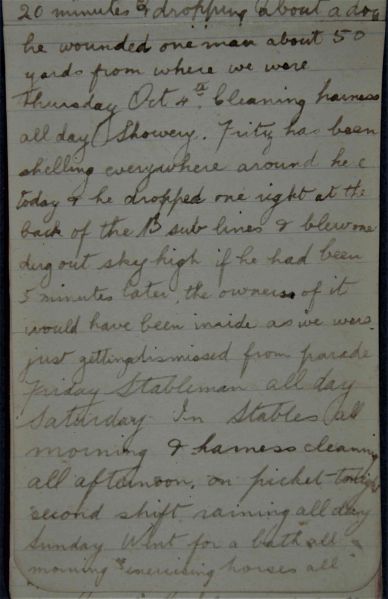 20 minutes & dropping about a doz
he wounded one man about 50
yards from where we were
Thursday Oct 4th. Cleaning harness
all day Showery. Fritz has been
shelling everywhere around here
today & he dropped one right at the
back of the B sub lines & blew one
dug out sky high if he had been
5 minutes later, the owners of it
would have been inside as we were
just getting dismissed from parade
Friday Stableman all day
Saturday In Stables all
morning & harness cleaning
all afternoon, on picket tonight
second shift, raining all day
Sunday Went for a bath all
morning & exercising horses all